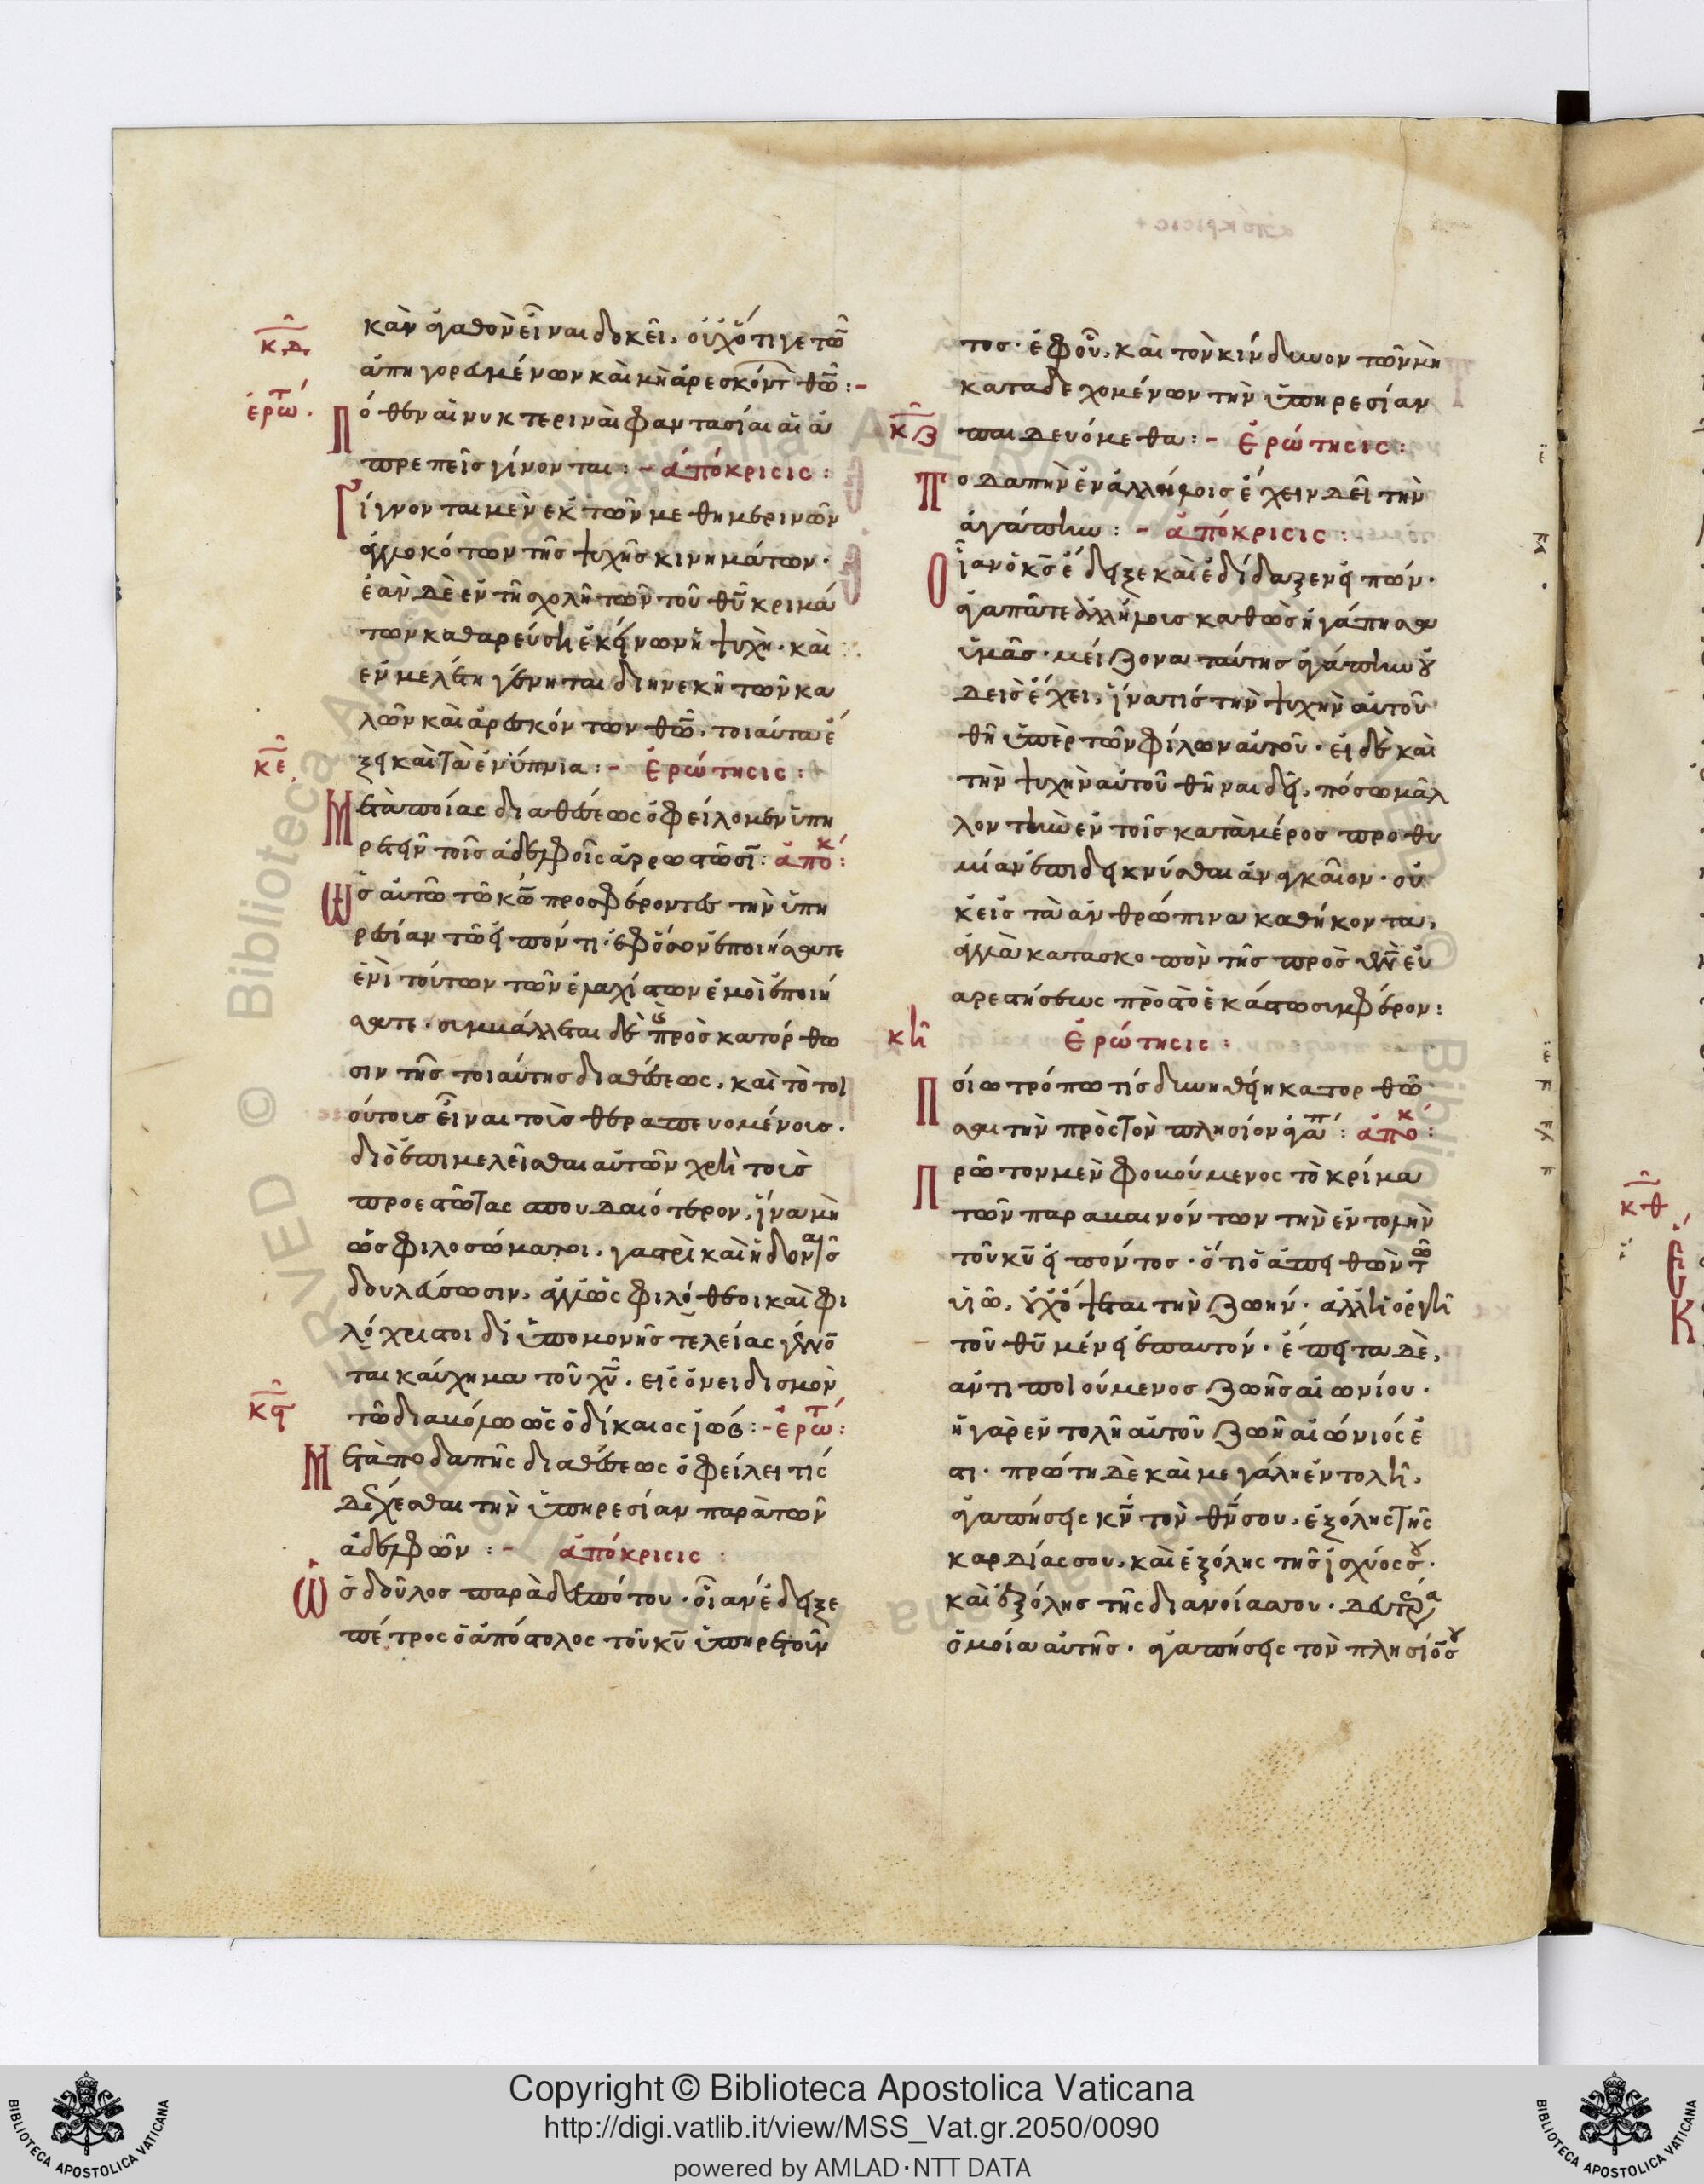 κἂν ἀγαθὸν εἶναι δοκεῖ, οὐχ ὅτι γε τῶ
ἀπηγορευμένων καὶ μὴ ἀρεσκόντ θῶ :-
κδ
ἐρωτ
Πόθεν αἱ νυκτεριναὶ φαντασίαι αἱ ἀ
πρεπεῖς γίνονται :- ἀπόκρισις :
Γίγνονται μὲν ἐκ τῶν μεθημερινῶν
ἀλλοκότων τῆς ψυχῆς κινημάτων ·
ἐὰν δὲ ἐν τῆ σχολῆ τῶν τοῦ θυ κριμά
των καθαρεύση ἐκείνων ἡ ψυχὴ · καὶ
ἐν μελέτη γένηται διηνεκῆ τῶν κα
λῶν καὶ ἀρεσκόντων θῶ, τοιαῦτα ἕ
κε
ξει καὶ τὰ ἐνύπνια :- Ἐρώτησις :
Μετὰ ποίας διαθέσεως ὀφείλομεν ὑπη
ρετεῖν τοῖς ἀδελφοῖς ἀρρωστῶσι : ἀποκ :
Ὡς αὐτῶ τῶ κω προσφέροντες τὴν ὑπη
ρεσίαν τῶ εἰπόντι · ἐφ ὅσον ἐποιήσατε
ἑνὶ τούτων τῶν ἐλαχίστων ἐμοὶ ἐποιή
σατε · συμβάλλεται δὲ πρὸς κατόρθω
σιν τῆς τοιαύτης διαθέσεως, καὶ τὸ τοι
ούτοις εἶναι τοῖς θεραπευομένοις ·
διὸ ἐπιμελεῖσθαι αὐτῶν χρὴ τοὺς
προεστῶτας σπουδαιότερον, ἵνα μὴ
ὡς φιλοσώματοι, γαστρὶ καὶ ἡδοναῖς
δουλεύσωσιν, ἀλλ ὡς φιλόθεοι καὶ φι
λόχριστοι δι ὑπομονῆς τελείας γένων
ται καύχημα τοῦ χυ, εἰς ὀνειδισμὸν
κϛ
τῶ διαβόλω ὡς ὁ δίκαιος ἰώβ :- ἐρωτ :
Μετὰ ποδαπῆς διαθέσεως ὀφείλει τίς
δέχεσθαι τὴν ὑπηρεσίαν παρὰ τῶν
ἀδελφῶν :- ἀπόκρισις :
Ὡς δοῦλος παρὰ δεσπότου · οἵαν ἔδειξε
πέτρος ὁ ἀπόστολος τοῦ κυ ὑπηρετοῦν
τος · ἐφ οὗ, καὶ τὸν κίνδυνον τῶν μὴ
καταδεχομένων τὴν ὑπηρεσίαν
κζ
παιδευόμεθα :- Ἐρώτησις :
Ποδαπὴν ἐν ἀλλήλοις ἔχειν δεῖ τὴν
ἀγάπην :- ἀπόκρισις :
Οἵαν ὁ κς ἔδειξε καὶ ἐδίδαξεν εἰπών ·
ἀγαπᾶτε ἀλλήλους καθὼς ἠγάπησα
ὑμᾶς · μείζονα ταύτης ἀγάπην οὐ
δεὶς ἔχει, ἵνα τίς τὴν ψυχὴν αὐτοῦ
θῆ ὑπὲρ τῶν φίλων αὐτοῦ · εἰ δὲ καὶ
τὴν ψυχὴν αὐτοῦ θῆναι δεῖ, πόσω μᾶλ
λον τὴν ἐν τοῖς κατὰ μέρος προθυ
μίαν ἐπιδείκνυσθαι ἀναγκαῖον · οὐ
κ εἰς τὰ ἀνθρώπινα καθήκοντα,
ἀλλὰ κατὰ σκοπὸν τῆς πρὸς θν εὐ
αρεστήσεως πρὸς τὸ ἑκάστω συμφέρον :
κη
Ἐρώτησις :
Ποίω τρόπω τίς δυνηθείη κατορθῶ
σαι τὴν πρὸς τὸν πλησίον ἀγαπ : ἀποκ :
Πρῶτον μὲν φοβούμενος τὸ κρίμα
τῶν παραβαινόντων τὴν ἐντολὴν
τοῦ κυ εἰπόντος · ὅτι ὁ ἀπειθῶν τῶ
υἱῶ, οὐχ ὄψεται τὴν ζωήν · ἀλλ ἡ ὀργὴ
τοῦ θυ μένει ἐπ αυτόν · ἔπειτα δὲ,
ἀντιποιούμενος ζωῆς αἰωνίου ·
ἡ γὰρ ἐντολὴ αὐτοῦ ζωὴ αἰώνιός ἐ
στι · πρώτη δὲ καὶ μεγάλη ἐντολὴ,
ἀγαπήσεις κν τὸν θν σου, ἐξ ὅλης τῆς
καρδίας σου, καὶ ἐξ ὅλης τῆς ἰσχύος σου ·
καὶ ἐξ ὅλης τῆς διανοίας σου · δευτέρα
ὁμοία αὐτῆς · ἀγαπήσεις τὸν πλησίον σου
κθ
Copyright © Biblioteca Apostolica Vaticana
http://digi.vatlib.it/view/MSS_Vat.gr.2050/0090
powered by AMLAD·NTT DATA